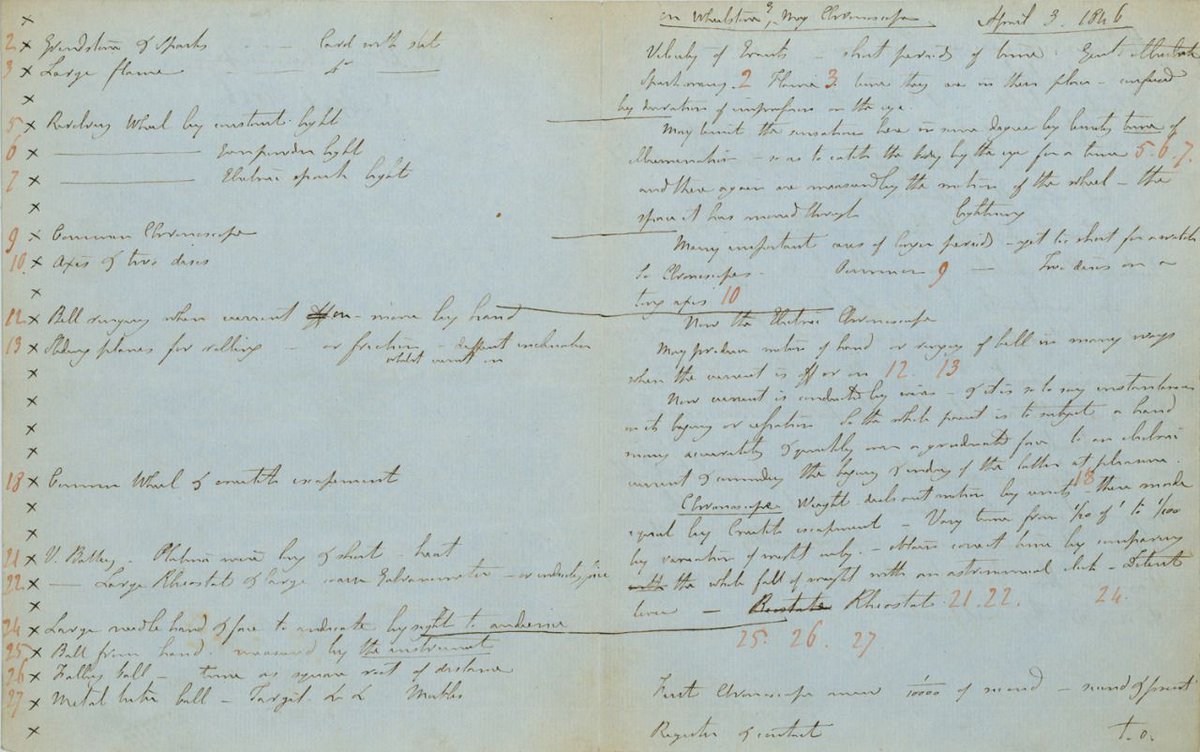 2 x Grindstone & Sparks - - - Card with slot
3 x Large flame - - - - - do ——
x
5 x Revolving Wheel by constant light
6 x ———— Gunpowder light
7 x ———— Electric spark light
x
9 x Common Chronoscope
10. x Axis of two discs
x
12 x Bell ringing when current off on - move by hand
13 x planes for rolling - or friction - different inclination
whilst current on
x
x
x
x
18 x Common Wheel & escapement
x
x
21 x V. Battery. Platina wire long & short - heat
22 x —— Large Rheostat & large coarse Galvanometer - or
x
24 x Large needle hand & face to indicate by sight to audience
25 x Ball from hand. measured by the instrument
26 x Falling ball - time as square root of distance
27 x Metal ball - Target
x
on Wheatstone's Chronoscope April 3. 1846
Velocity of Events - short periods of time.
Sparks many 2 Flame 3 time they are in their place - confused
by duration of impression on the eye.
May limit the sensation here in some degree by limiting time of
illumination - so as to catch the body by the eye for a time 5.6.7.
and these again are measured by the motion of the wheel - the
space it has moved through Lightning
Many important cases of longer period - yet too short for a watch
So Chronoscopes. Common 9 — Two discs on a
long axis 10
Now the Electric Chronoscope
May produce motion of hand or ringing of bell in many ways
when the current is off or on 12. 13
Now current is conducted by wires - & it is so to say instantaneous
in its begining or cessation So the whole point is to subject a hand
moving accurately & quickly over a graduated face to an electric
current & the begining & ending of the latter at pleasure.
Chronoscope. Weight motion by 18 - these made
equal by escapement - Vary time from 1/20 of 1' to 1/100
by variation of weight only. - obtains correct time by comparing
with the whole fall of weight with an astronomical clock - Detent
lever — Rheostats Rheostats 21. 22. 24.
25. 26. 27
First Chronoscope 1/10000 of second -
Register of contact T.O.